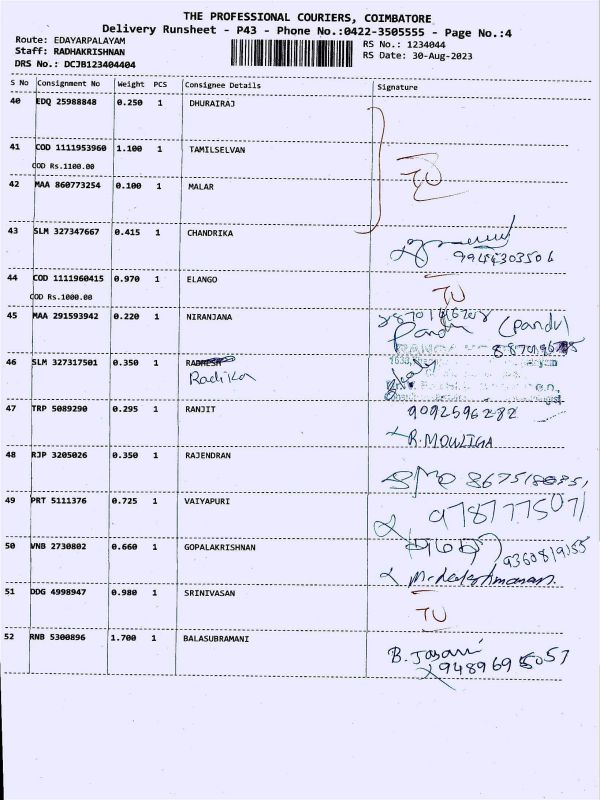 THE PROFESSIONAL COURIERS, COIMBATORE
Delivery Runsheet - P43 - Phone No.:0422-3505555 - Page No.:4
Route: EDAYARPALAYAM
Staff: RADHAKRISHNAN
DRS No.: DCJB123404404
RS No.: 1234044
RS Date: 30-Aug-2023
S No Consignment No Weight PCS Consignee Details Signature
40 EDQ 25988848 0.250 1 DHURAIRAJ
41 COD 1111953960 1.100 1 TAMILSELVAN
COD Rs.1100.00
42 MAA 860773254 0.100 1 MALAR
43 SLM 327347667 0.415 1 CHANDRIKA
9944303506
44 COD 1111960415 0.970 1 ELANGO
COD Rs.1000.00
TU
45 MAA 291593942 0.220 1 NIRANJANA
Pandu (Pandu)
46 SLM 327317501 0.350 1
Radika
47 TRP 5089290 0.295 1 RANJIT
9092596282
R.MOULIGA
48 RJP 3205026 0.350 1 RAJENDRAN
49 PRT 5111376 0.725 1 VAIYAPURI
9787775071
50 VNB 2730802 0.660 1 GOPALAKRISHNAN
9360819155
51 DDG 4998947 0.980 1 SRINIVASAN
TU
52 RNB 5300896 1.700 1 BALASUBRAMANI
B.